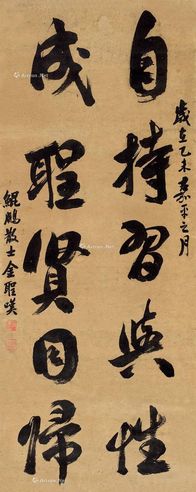 歲在乙未嘉平之月
自持習與性
成聖賢同歸
鯤鵬散士金聖嘆